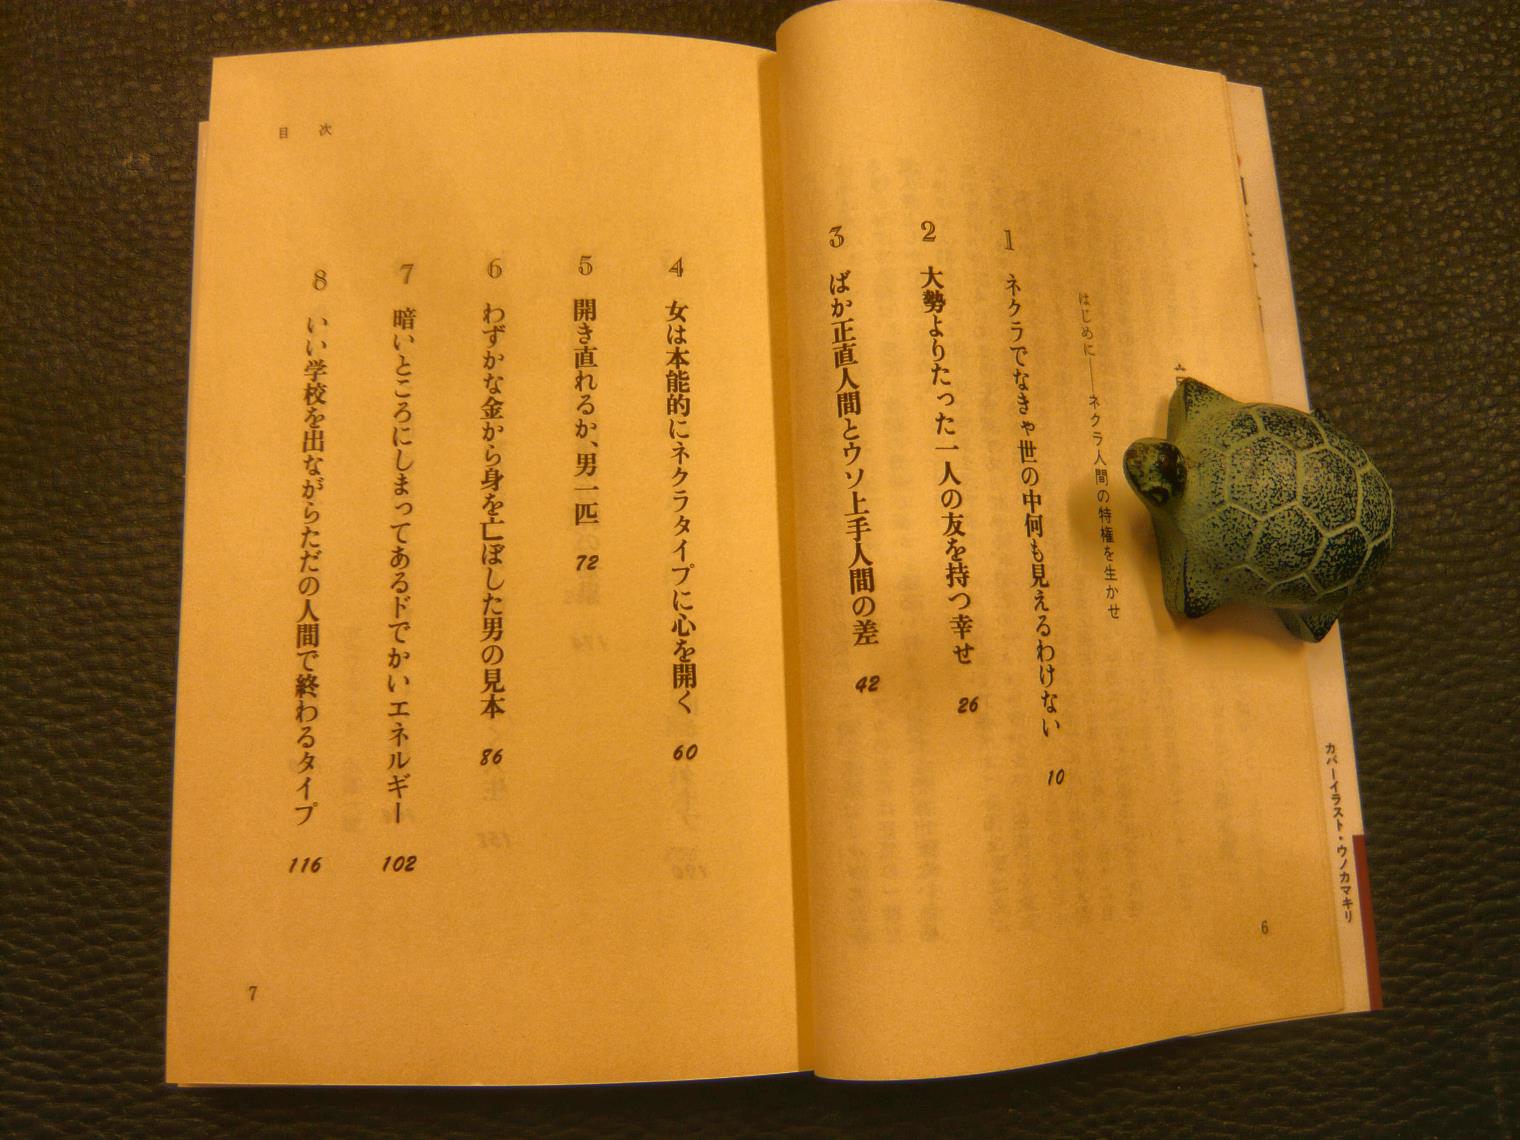 はじめに――ネクラ人間の特権を生かせ
1 ネクラでなきゃ世の中何も見えるわけない 10
2 大勢よりたった一人の友を持つ幸せ 26
3 ばか正直人間とウソ上手人間の差 42
6
カバーイラスト・ウノカマキリ
目次
4 女は本能的にネクラタイプに心を開く 60
5 開き直れるか、男一匹 72
6 わずかな金から身を亡ぼした男の見本 86
7 暗いところにしまってあるドでかいエネルギー 102
8 いい学校を出ながらただの人間で終わるタイプ 116
7